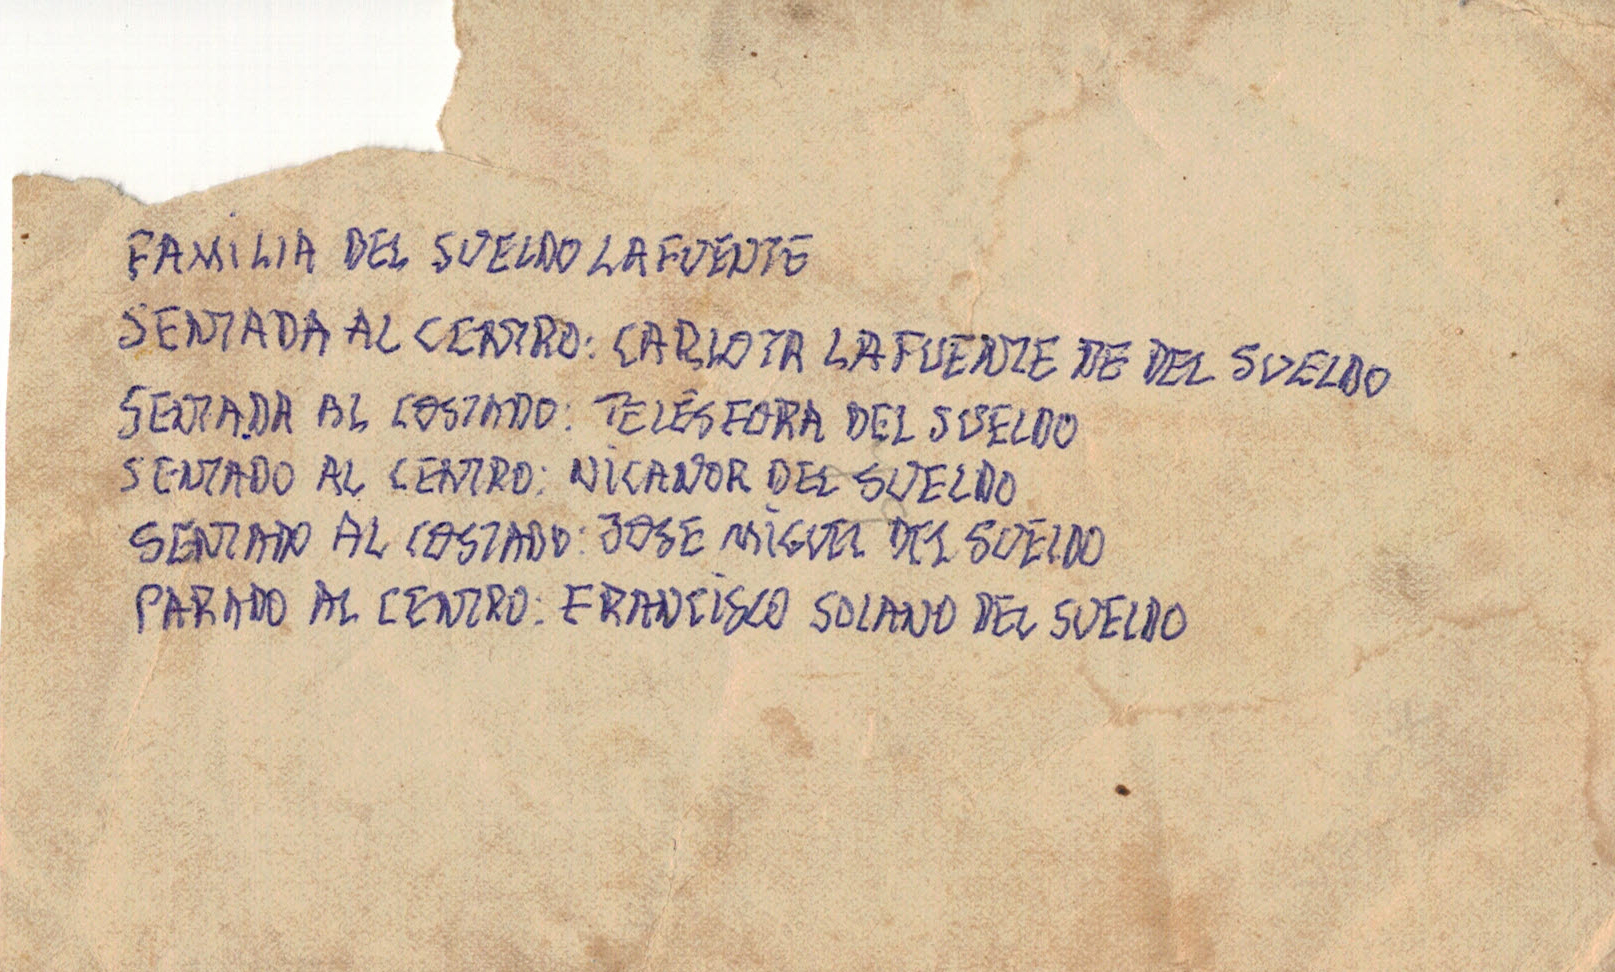 FAMILIA DEL SUELDO LAFUENTE
SENTADA AL CENTRO: CARLOTA LAFUENTE DE DEL SUELDO
SENTADA AL COSTADO: TELÉSFORA DEL SUELDO
SENTADO AL CENTRO: NICANOR DEL SUELDO
SENTADO AL COSTADO: JOSE MIGUEL DEL SUELDO
PARADO AL CENTRO: FRANCISCO SOLANO DEL SUELDO